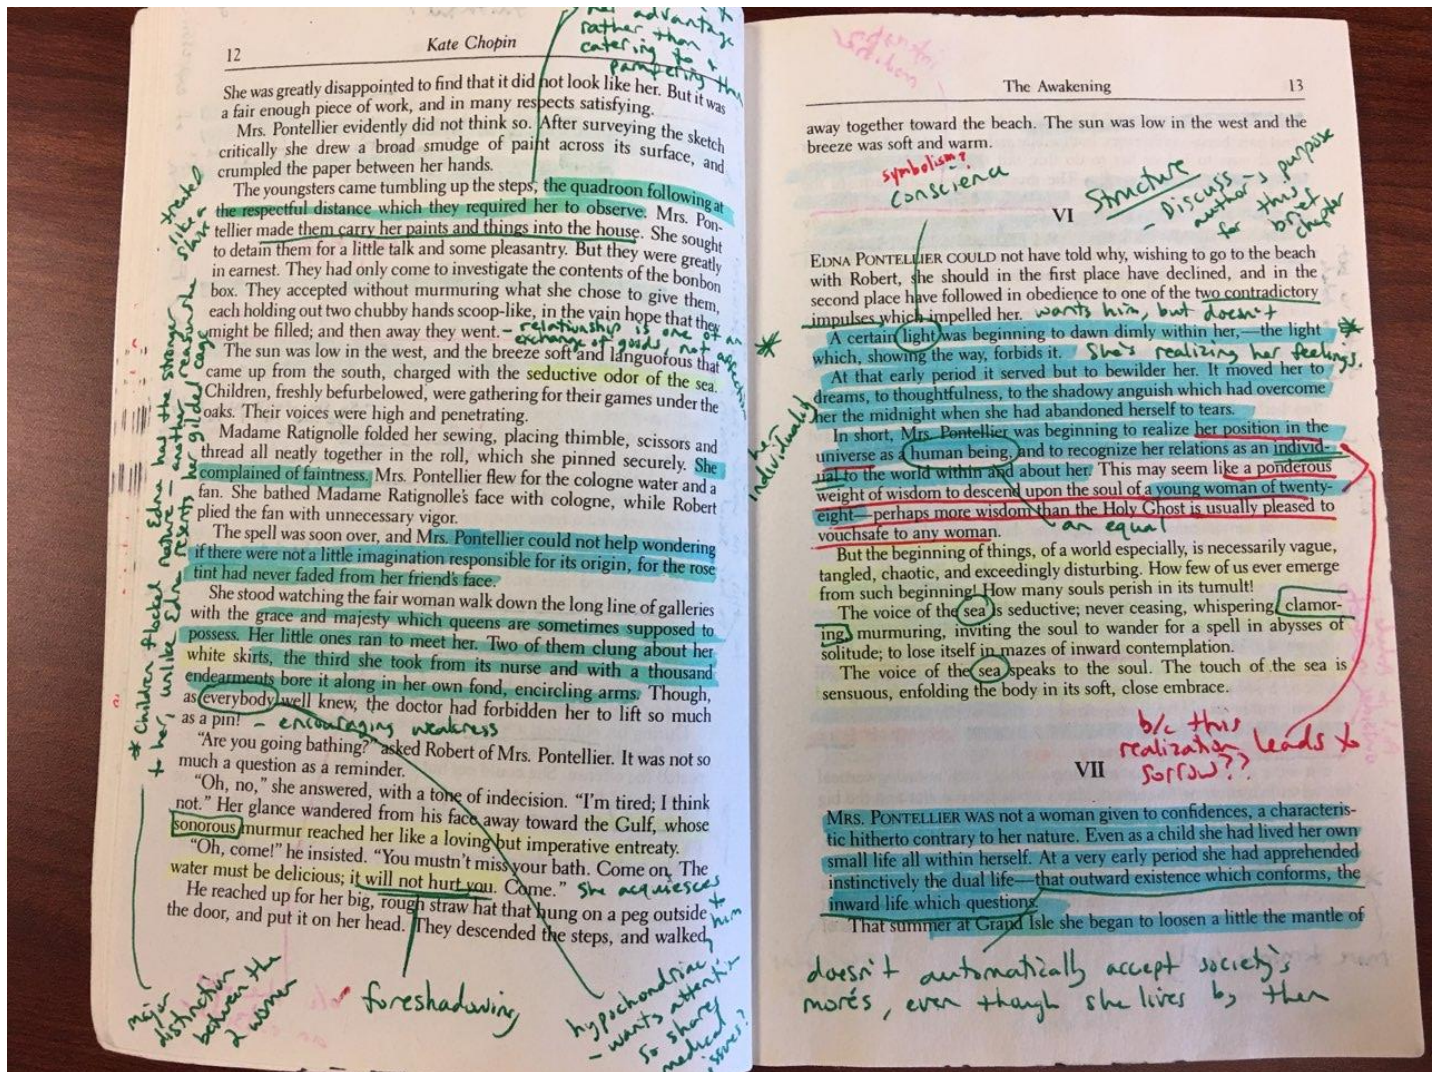 12
Kate Chopin
her advantage
rather than
catering to +
pampering them
She was greatly disappointed to find that it did not look like her. But it was
a fair enough piece of work, and in many respects satisfying.
Mrs. Pontellier evidently did not think so. After surveying the sketch
critically she drew a broad smudge of paint across its surface, and
crumpled the paper between her hands.
The youngsters came tumbling up the steps, the quadroon following at
the respectful distance which they required her to observe. Mrs. Pon-
tellier made them carry her paints and things into the house. She sought
to detain them for a little talk and some pleasantry. But they were greatly
in earnest. They had only come to investigate the contents of the bonbon
box. They accepted without murmuring what she chose to give them,
each holding out two chubby hands scoop-like, in the vain hope that they
might be filled; and then away they went. – relationship is one of an
exchange of goods, not affection
The sun was low in the west, and the breeze soft and languorous that
came up from the south, charged with the seductive odor of the sea.
Children, freshly befurbelowed, were gathering for their games under the
oaks. Their voices were high and penetrating.
Madame Ratignolle folded her sewing, placing thimble, scissors and
thread all neatly together in the roll, which she pinned securely. She
complained of faintness. Mrs. Pontellier flew for the cologne water and a
fan. She bathed Madame Ratignolle's face with cologne, while Robert
plied the fan with unnecessary vigor.
The spell was soon over, and Mrs. Pontellier could not help wondering
if there were not a little imagination responsible for its origin, for the rose
tint had never faded from her friend's face.
She stood watching the fair woman walk down the long line of galleries
with the grace and majesty which queens are sometimes supposed to
possess. Her little ones ran to meet her. Two of them clung about her
white skirts, the third she took from its nurse and with a thousand
endearments bore it along in her own fond, encircling arms. Though,
as everybody well knew, the doctor had forbidden her to lift so much
as a pin! – encouraging weakness
"Are you going bathing?" asked Robert of Mrs. Pontellier. It was not so
much a question as a reminder.
"Oh, no," she answered, with a tone of indecision. "I'm tired; I think
not." Her glance wandered from his face away toward the Gulf, whose
sonorous murmur reached her like a loving but imperative entreaty.
"Oh, come!" he insisted. "You mustn't miss your bath. Come on. The
water must be delicious; it will not hurt you. Come." she acquiesces
to him
He reached up for her big, rough straw hat that hung on a peg outside
the door, and put it on her head. They descended the steps, and walked
* Children flocked nature – another reason she
to her, unlike Edna resents her gilded cage
Edna has the stronger
treated
like a
star
major
distinction
between the
2 women
foreshadowing
hypochondriac
– wants attention
so shares
medical
issues?
The Awakening
13
away together toward the beach. The sun was low in the west and the
breeze was soft and warm.
symbolism?
conscience
Structure
– Discuss
author's purpose
for this
brief
chapter
VI
EDNA PONTELLIER COULD not have told why, wishing to go to the beach
with Robert, she should in the first place have declined, and in the
second place have followed in obedience to one of the two contradictory
impulses which impelled her. wants him, but doesn't
A certain light was beginning to dawn dimly within her,—the light
which, showing the way, forbids it. She's realizing her feelings.
At that early period it served but to bewilder her. It moved her to
dreams, to thoughtfulness, to the shadowy anguish which had overcome
her the midnight when she had abandoned herself to tears.
In short, Mrs. Pontellier was beginning to realize her position in the
universe as a human being, and to recognize her relations as an individ-
ual to the world within and about her. This may seem like a ponderous
weight of wisdom to descend upon the soul of a young woman of twenty-
eight—perhaps more wisdom than the Holy Ghost is usually pleased to
vouchsafe to any woman.
an equal
her
individuality
But the beginning of things, of a world especially, is necessarily vague,
tangled, chaotic, and exceedingly disturbing. How few of us ever emerge
from such beginning! How many souls perish in its tumult!
The voice of the sea is seductive; never ceasing, whispering, clamor-
ing, murmuring, inviting the soul to wander for a spell in abysses of
solitude; to lose itself in mazes of inward contemplation.
The voice of the sea speaks to the soul. The touch of the sea is
sensuous, enfolding the body in its soft, close embrace.
b/c this
realization leads to
sorrow??
VII
MRS. PONTELLIER WAS not a woman given to confidences, a characteris-
tic hitherto contrary to her nature. Even as a child she had lived her own
small life all within herself. At a very early period she had apprehended
instinctively the dual life—that outward existence which conforms, the
inward life which questions.
That summer at Grand Isle she began to loosen a little the mantle of
doesn't automatically accept society's
morés, even though she lives by them